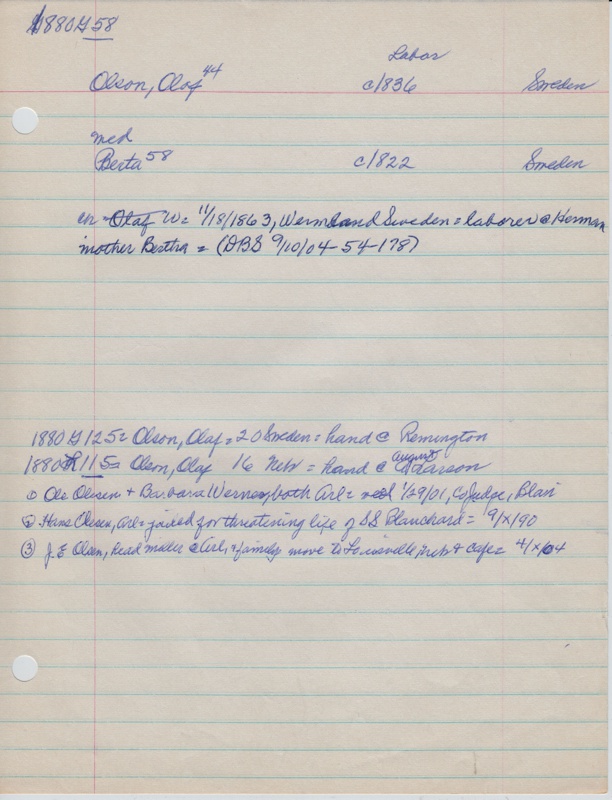 1880 G 58
Labor
Olson, Olaf 44 c1836 Sweden
med
Berta 58 c1822 Sweden
ch = Olaf W = 11/18/1863, Wermland Sweden = laborer @ Herman
mother Bertha = (DBS 9/10/04-54-178)
1880 G 125 = Olson, Olaf = 20 Sweden = hand @ Remington
1880 R 115 = Olson, Olaf 16 Nebr = hand @ August Larson
① Ole Olesen + Barbara Werner, both Arl = 1/29/01, Co Judge, Blair
② Hans Olesen, Arl = jailed for threatening life of SS Blanchard = 9/X/90
③ J.E Olsen, head miller @ Arl, + family move to Louisville, neb + cafe = 4/X/04